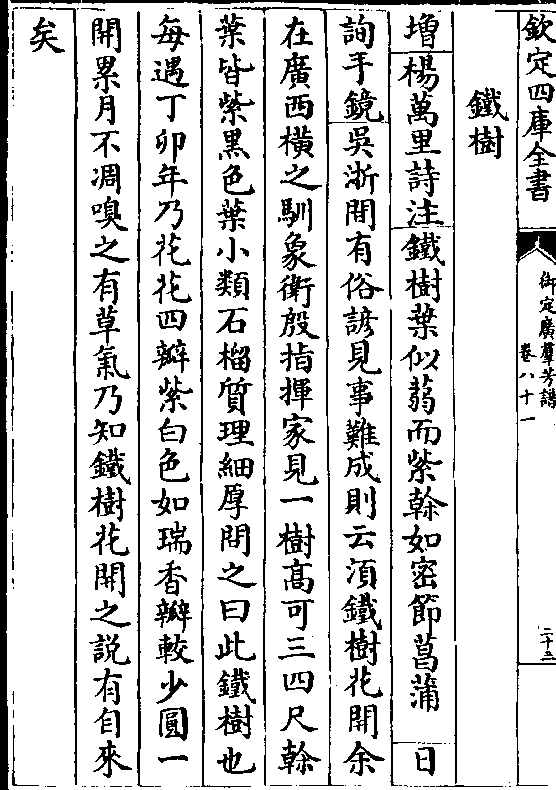 欽定四庫全書
御定廣羣芳譜
卷八十一
二十三
鐵樹
增楊萬里詩注鐵樹葉似蒻而紫幹如密節菖蒲 日
詢手鏡吳浙間有俗諺見事難成則云湏鐵樹花開余
在廣西橫之馴象衛殷指揮家見一樹高可三四尺幹
葉皆紫黑色葉小類石榴質理細厚問之曰此鐵樹也
每遇丁卯年乃花花四瓣紫白色如瑞香瓣較少圓一
開累月不凋嗅之有草氣乃知鐵樹花開之說有自來
矣